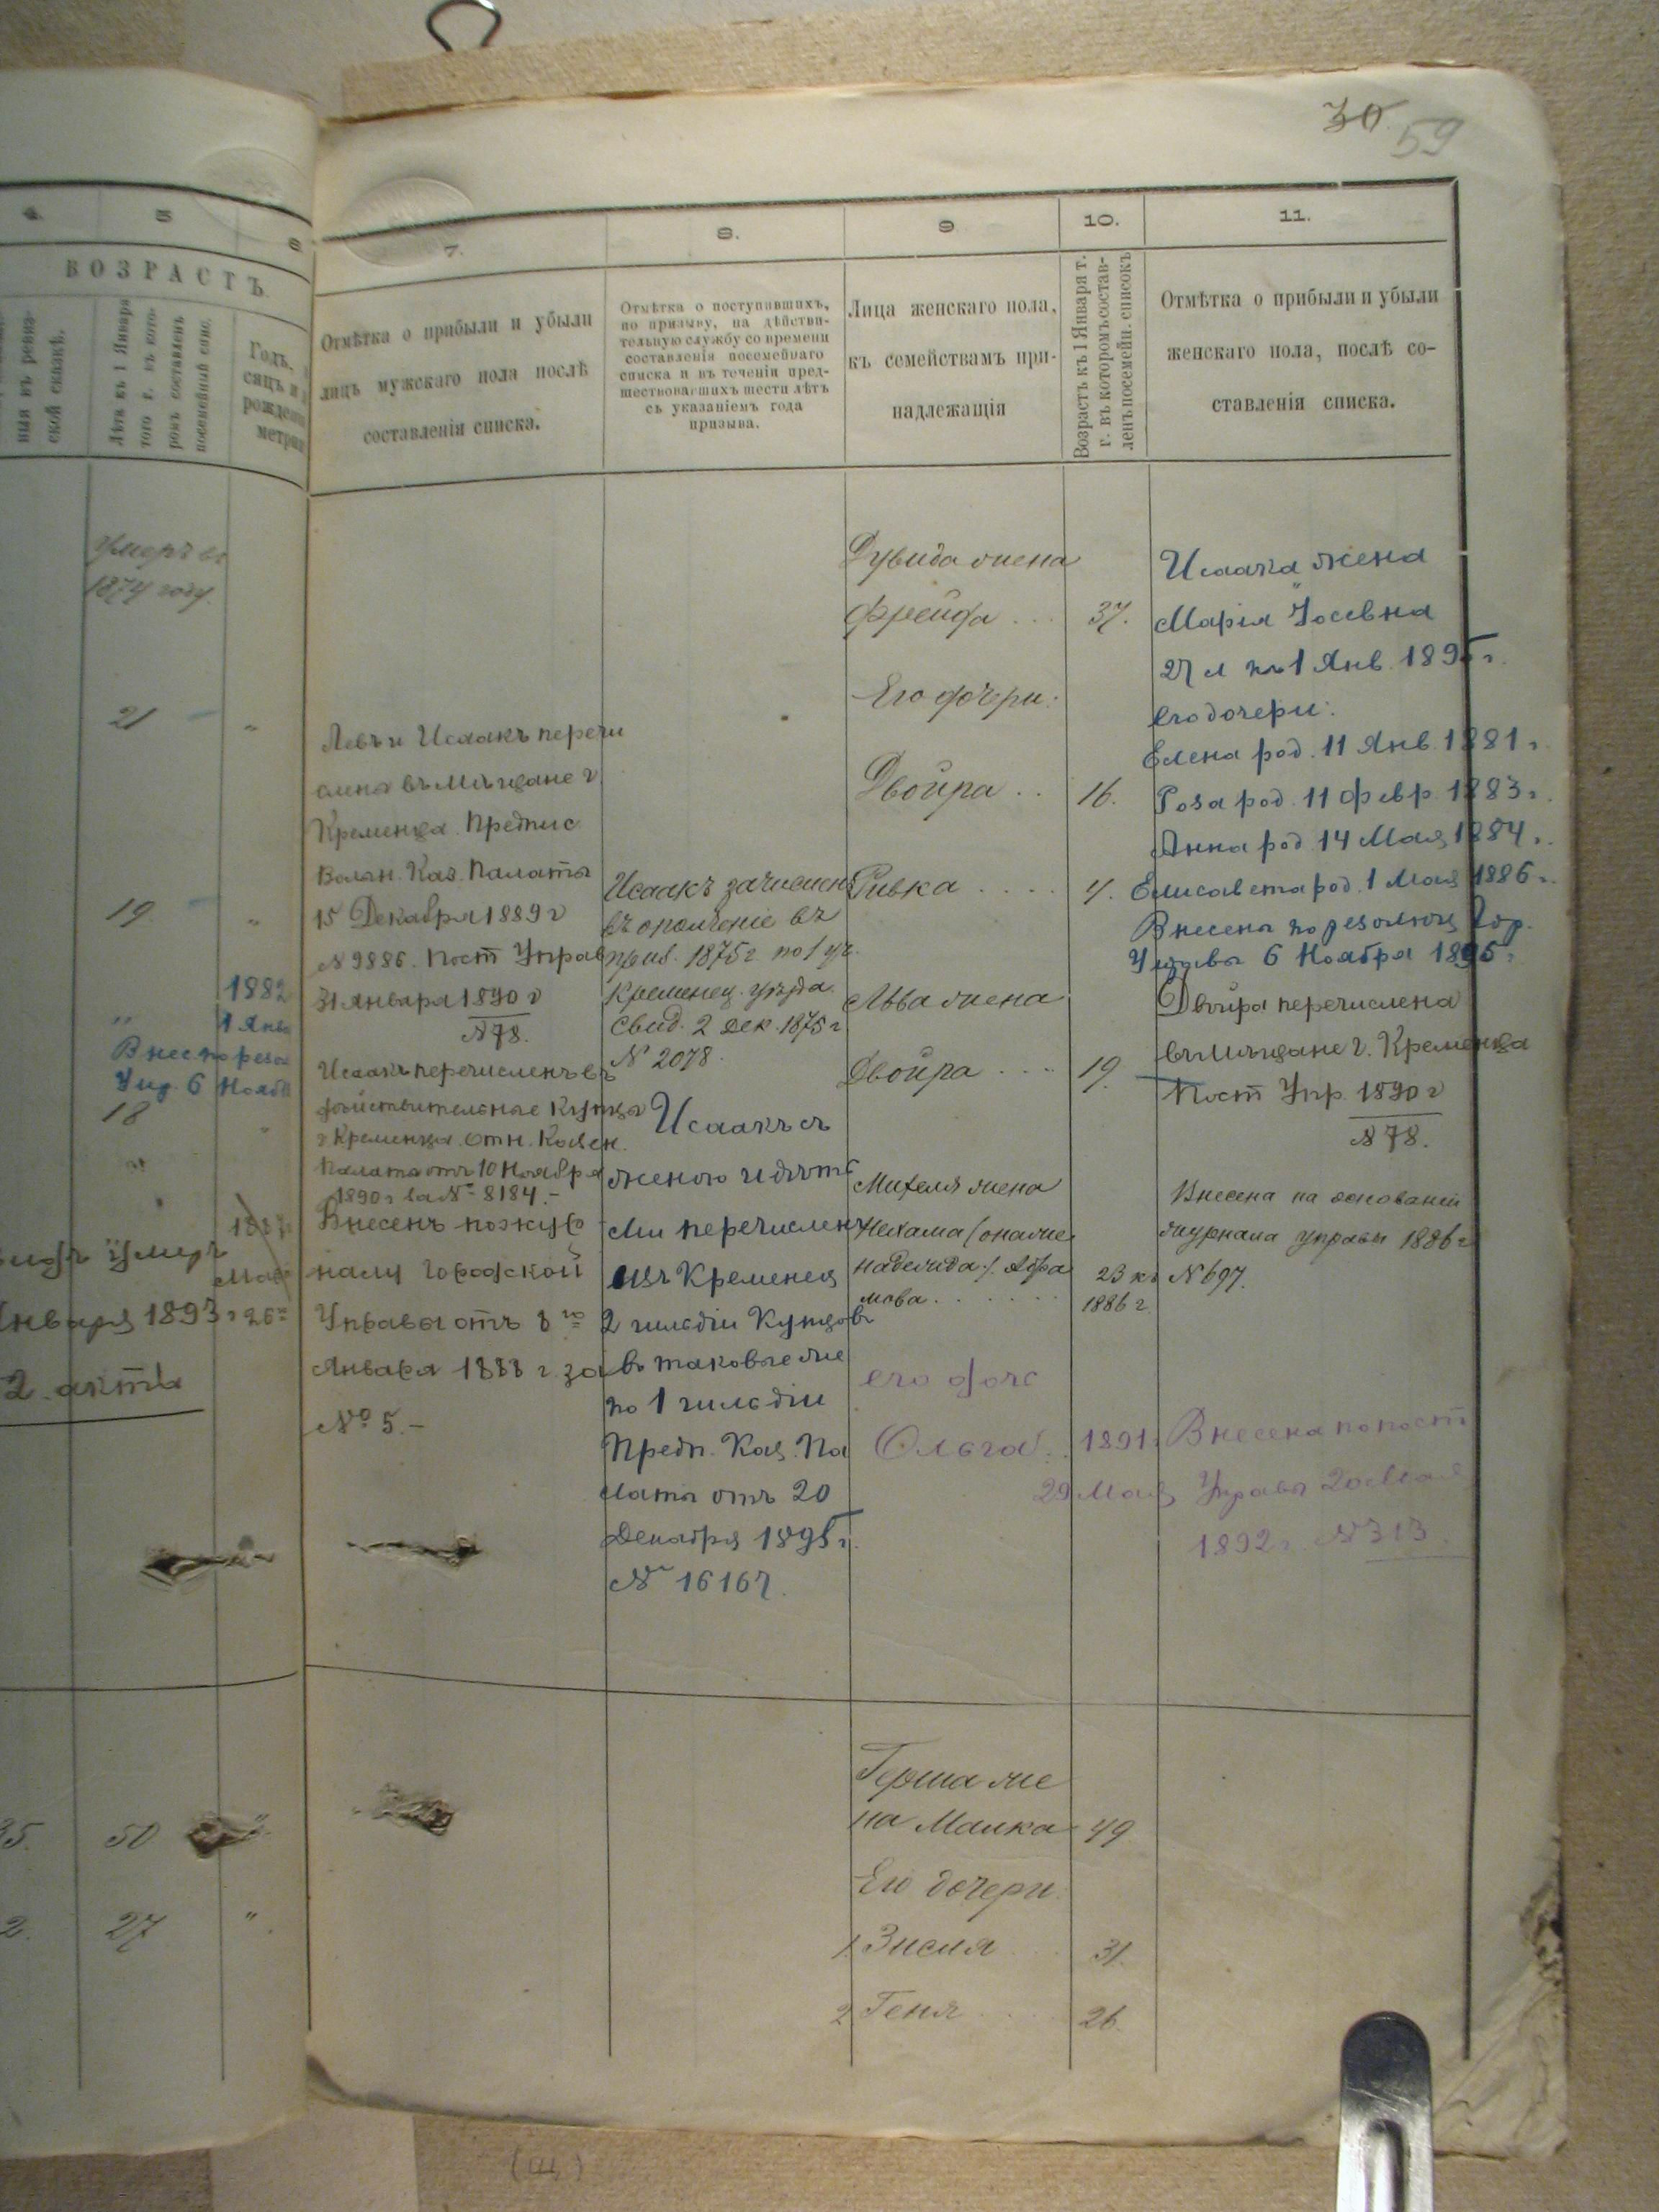 30.
59
4.
5
6
ВОЗРАСТЪ.
Лѣтъ къ 1 Января
того г. въ кото-
ромъ составленъ
посемейный спис.
Годъ,
рожден
метри
Умеръ въ
1874 году.
21
19.
1882
1 Янв
Внес по резо
Упр. 6 Нояб
18
умеръ
Января 1893 г
2. актъ
50
27
7.
Отмѣтка о прибыли и убыли
лицъ мужскаго пола послѣ
составленія списка.
Левъ и Исаакъ перечи
слены въ Мѣщане г.
Кременца. Предпис.
Волын. Каз. Палаты
15 Декабря 1889 г
№ 9886. Пост Управ
31 Января 1890 г
№ 78.
Исаакъ перечисленъ въ
дѣйствительные Купцы
г Кременца. Отн. Казен.
Палаты отъ 10 Ноября
1890 г за № 8184. –
Внесенъ по жур
налу Городской
Управы отъ 8го
Января 1888 г. за
№ 5. –
8.
Отмѣтка о поступившихъ,
по призыву, на дѣйстви-
тельную службу со времени
составленія посемейнаго
списка и въ теченіи пред-
шествовавшихъ шести лѣтъ
съ указаніемъ года
призыва.
Исаакъ зачисленъ
въ ополченіе въ
приз. 1875 г. по 1 уч.
Кременец. уѣзда.
Свид. 2 Дек. 1875 г
№ 2078.
Исаакъ съ
женою и дѣть
ми перечисленъ
изъ Кременец
2 гильдіи Купцовъ
въ таковые же
по 1 гильдіи
Предп. Каз. Па
латы отъ 20
Декабря 1895 г.
№ 16167.
9
Лица женскаго пола,
къ семействамъ при-
надлежащія
Дувида жена
Фрейда . . .
Его дочери:
Двойра . .
Ривка . . . .
Льва жена
Двойра . . . .
Михеля жена
Нехама (она же
Надежда) Абра
мова . . . . . .
его дочь
Ольга.
29 Мая
Герша же
на Малка
Его дочери.
1 Зисля . . .
2 Геня . . . .
10.
Возрастъ къ 1 Января т.
г. въ которомъ состав-
ленъ посемейн. списокъ
37.
16.
19.
23 къ
1886 г.
1891.
49
31.
26.
11.
Отмѣтка о прибыли и убыли
женскаго пола, послѣ со-
ставленія списка.
Исаака жена
Марія Іосевна
27 л къ 1 Янв. 1895 г.
его дочери:
Елена род. 11 Янв. 1881 г.
Роза род. 11 февр. 1883 г.
Анна род. 14 Мая 1884 г.
Елисавета род. 1 Мая 1886 г.
Внесены по резолюц Гор.
Управы 6 Ноября 1895 г.
Двойра перечислена
въ Мѣщане г. Кременца
Пост Упр. 1890 г
№ 78.
Внесена на основаніи
журнала управы 1886 г
№ 697.
Внесена по пост
Управы
1892 г. № 313.